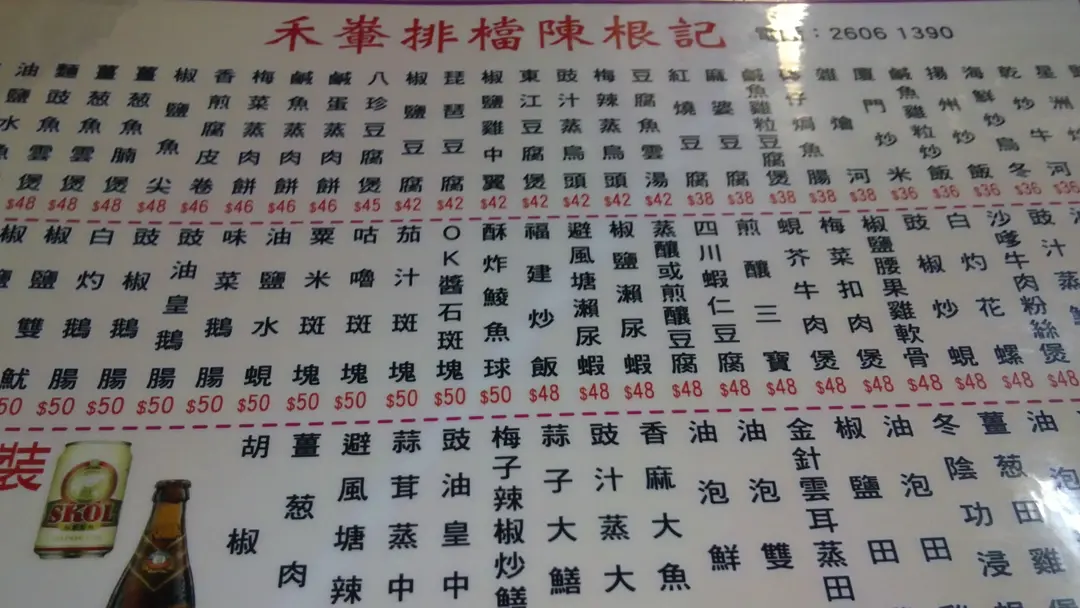 禾輋排檔陳根記
電話：2606 1390
乾炒牛河 $36
海鮮炒烏冬 $36
揚州炒飯 $36
鹹魚雞粒炒飯 $36
廈門炒米 $36
雜燴河 $38
砵仔焗魚腸 $38
鹹魚雞粒豆腐煲 $38
麻婆豆腐 $38
紅燒豆腐 $38
豆腐魚雲湯 $42
梅辣蒸烏頭 $42
豉汁蒸烏頭 $42
東江豆腐煲 $42
椒鹽雞中翼 $42
琵琶豆腐 $42
椒鹽豆腐 $42
八珍豆腐煲 $45
鹹蛋蒸肉餅 $46
鹹魚蒸肉餅 $46
梅菜蒸肉餅 $46
香煎腐皮卷 $46
椒鹽魚尖 $48
薑葱魚腩煲 $48
薑葱魚雲煲 $48
麵豉魚雲煲 $48
油鹽水魚
豉汁蒸 $48
沙嗲牛肉粉絲煲 $48
白灼花螺 $48
豉椒炒蜆 $48
椒鹽腰果雞軟骨 $48
梅菜扣肉煲 $48
蜆芥牛肉煲 $48
煎釀三寶 $48
四川蝦仁豆腐 $48
蒸釀或煎釀豆腐 $48
椒鹽瀨尿蝦 $48
避風塘瀨尿蝦 $48
福建炒飯 $48
酥炸鯪魚球 $50
OK醬石斑塊 $50
茄汁斑塊 $50
咕嚕斑塊 $50
粟米斑塊 $50
油鹽水蜆 $50
味菜鵝腸 $50
豉油皇鵝腸 $50
豉椒鵝腸 $50
白灼鵝腸 $50
椒鹽雙魷 $50
油泡
薑葱田雞煲
冬陰功浸
油泡田
椒鹽田
金針雲耳蒸田
油泡雙
油泡鮮
香麻大魚
豉汁蒸大
蒜子大鱔
梅子辣椒炒鱔
豉油皇中
蒜茸蒸中
避風塘辣
薑葱肉
胡椒
裝
SKOL